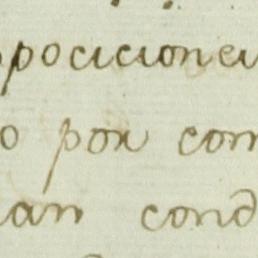 pocicione
o por com
an cond